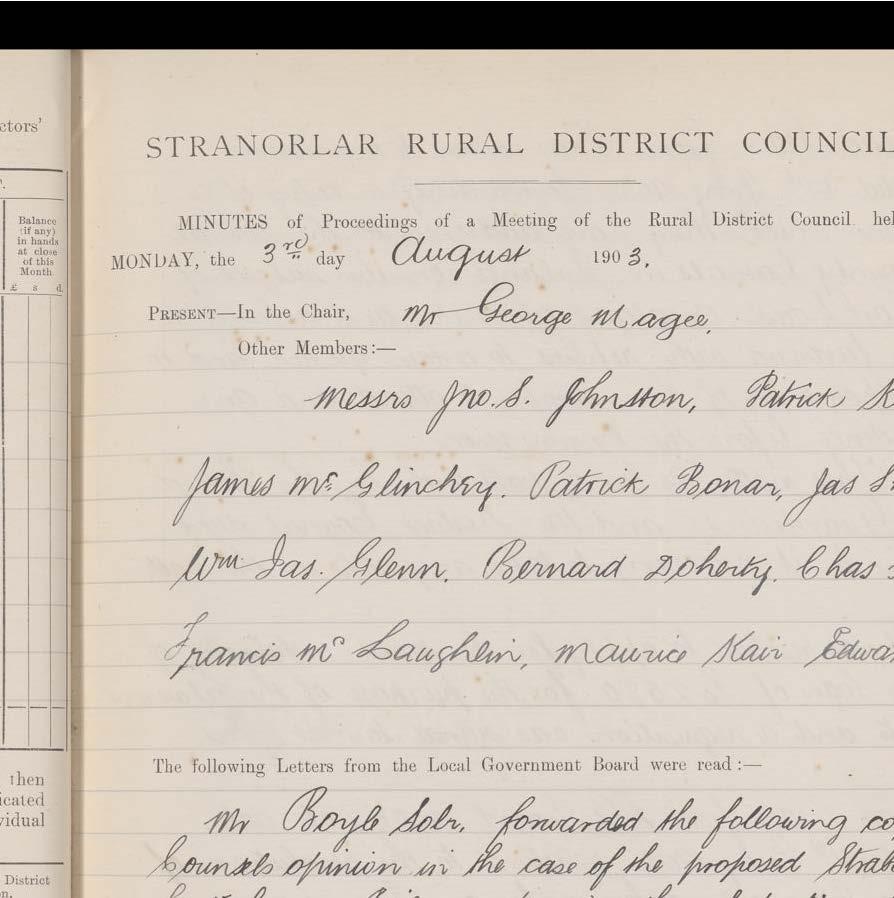 ctors'
Balance
(if any)
in hands
at close
of this
Month.
£ s d.
then
icated
vidual
District
on,
STRANORLAR RURAL DISTRICT COUNCIL
MINUTES of Proceedings of a Meeting of the Rural District Council hel
MONDAY, the 3rd day August 1903.
PRESENT—In the Chair, Mr George Magee,
Other Members:—
Messrs Jno. S. Johnston, Patrick K
James McGlinchey. Patrick Bonar, Jas S.
Wm Jas. Glenn. Bernard Doherty. Chas
Francis McLaughlin, Maurice Kair Edwa
The following Letters from the Local Government Board were read:—
Mr Boyle Solr. forwarded the following co
Counsels opinion in the case of the proposed Strab